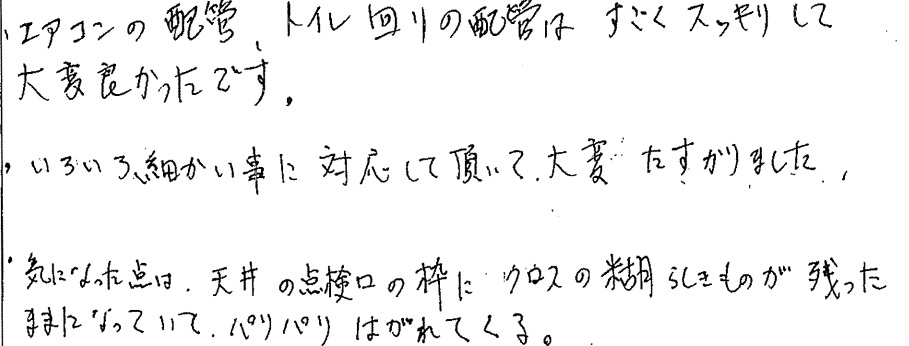 ・エアコンの配管、トイレ回りの配管は すごくスッキリして
大変良かったです。
・いろいろ細かい事に対応して頂いて、大変たすかりました。
・気になった点は、天井の点検口の枠に クロスの糊らしきものが残った
ままになっていて、パリパリはがれてくる。